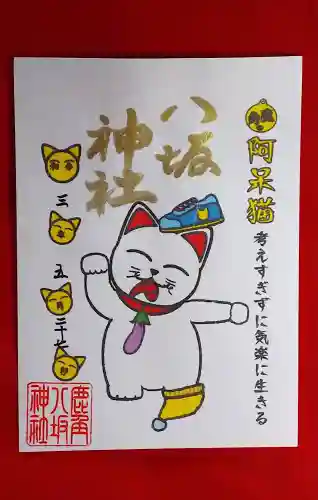 阿呆猫
考えすぎずに気楽に生きる
八坂
神社
三
五
二十七
鹿角
八坂
神社